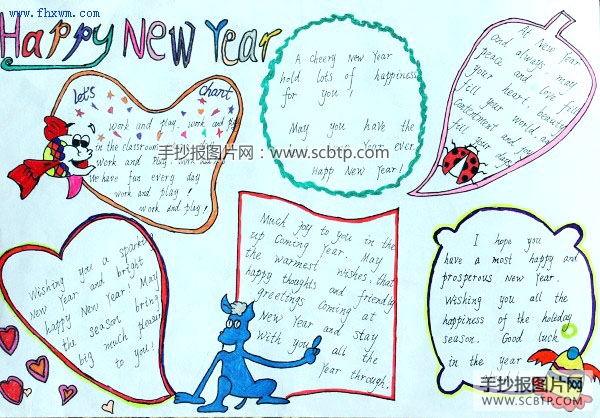 www.fhxwm.com
Happy New Year
Let's Chant
work and play, work and play
in the classroom
work and play, work
We have fun every day
work and play!
work and play!
手抄报图片网:www.scbtp.com
A cheery New Year
hold lots of happiness
for you!
May you have the
Year ever.
Happy New Year!
At New Year
and always, may
peace and love fill
your heart, beauty
fill your world, and
Contentment and joy
fill your days.
Wishing you a sparkling
New Year and bright
happy New Year! May
the season bring
big much pleasure
to you!
Much joy to you in the
up Coming Year. May
the warmest wishes, that
happy thoughts and friendly
greetings coming at
New Year and stay
With you all the
Year through.
I hope you
have a most happy and
prosperous New Year.
Wishing you all the
happiness of the holiday
season. Good luck
in the year
手抄报图片网
WWW.SCBTP.COM